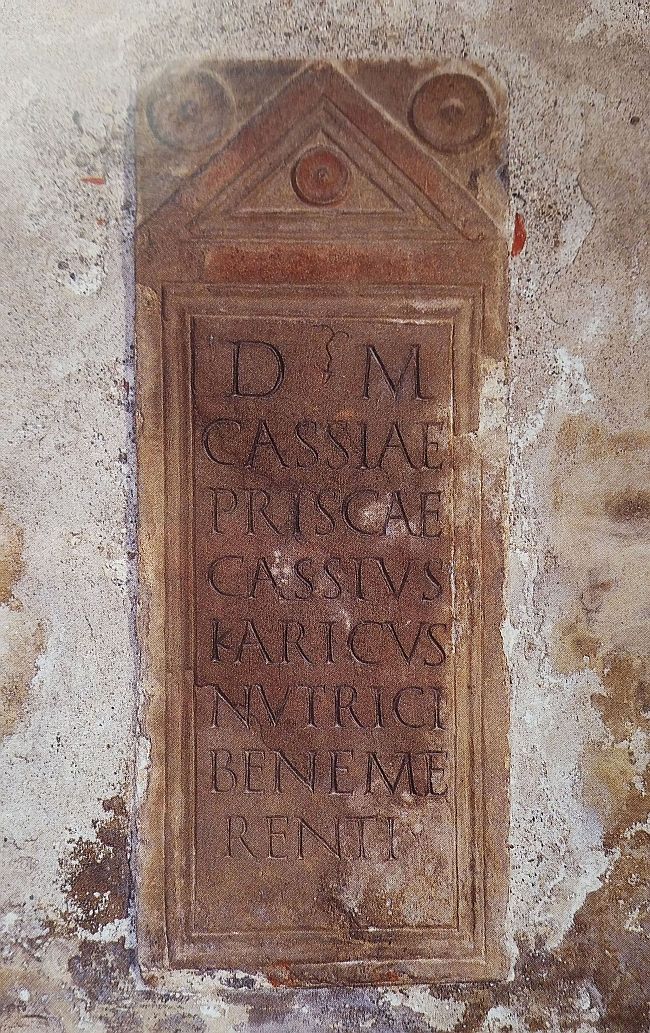 D M
CASSIAE
PRISCAE
CASSIVS
KARICVS
NVTRICI
BENEME
RENTI